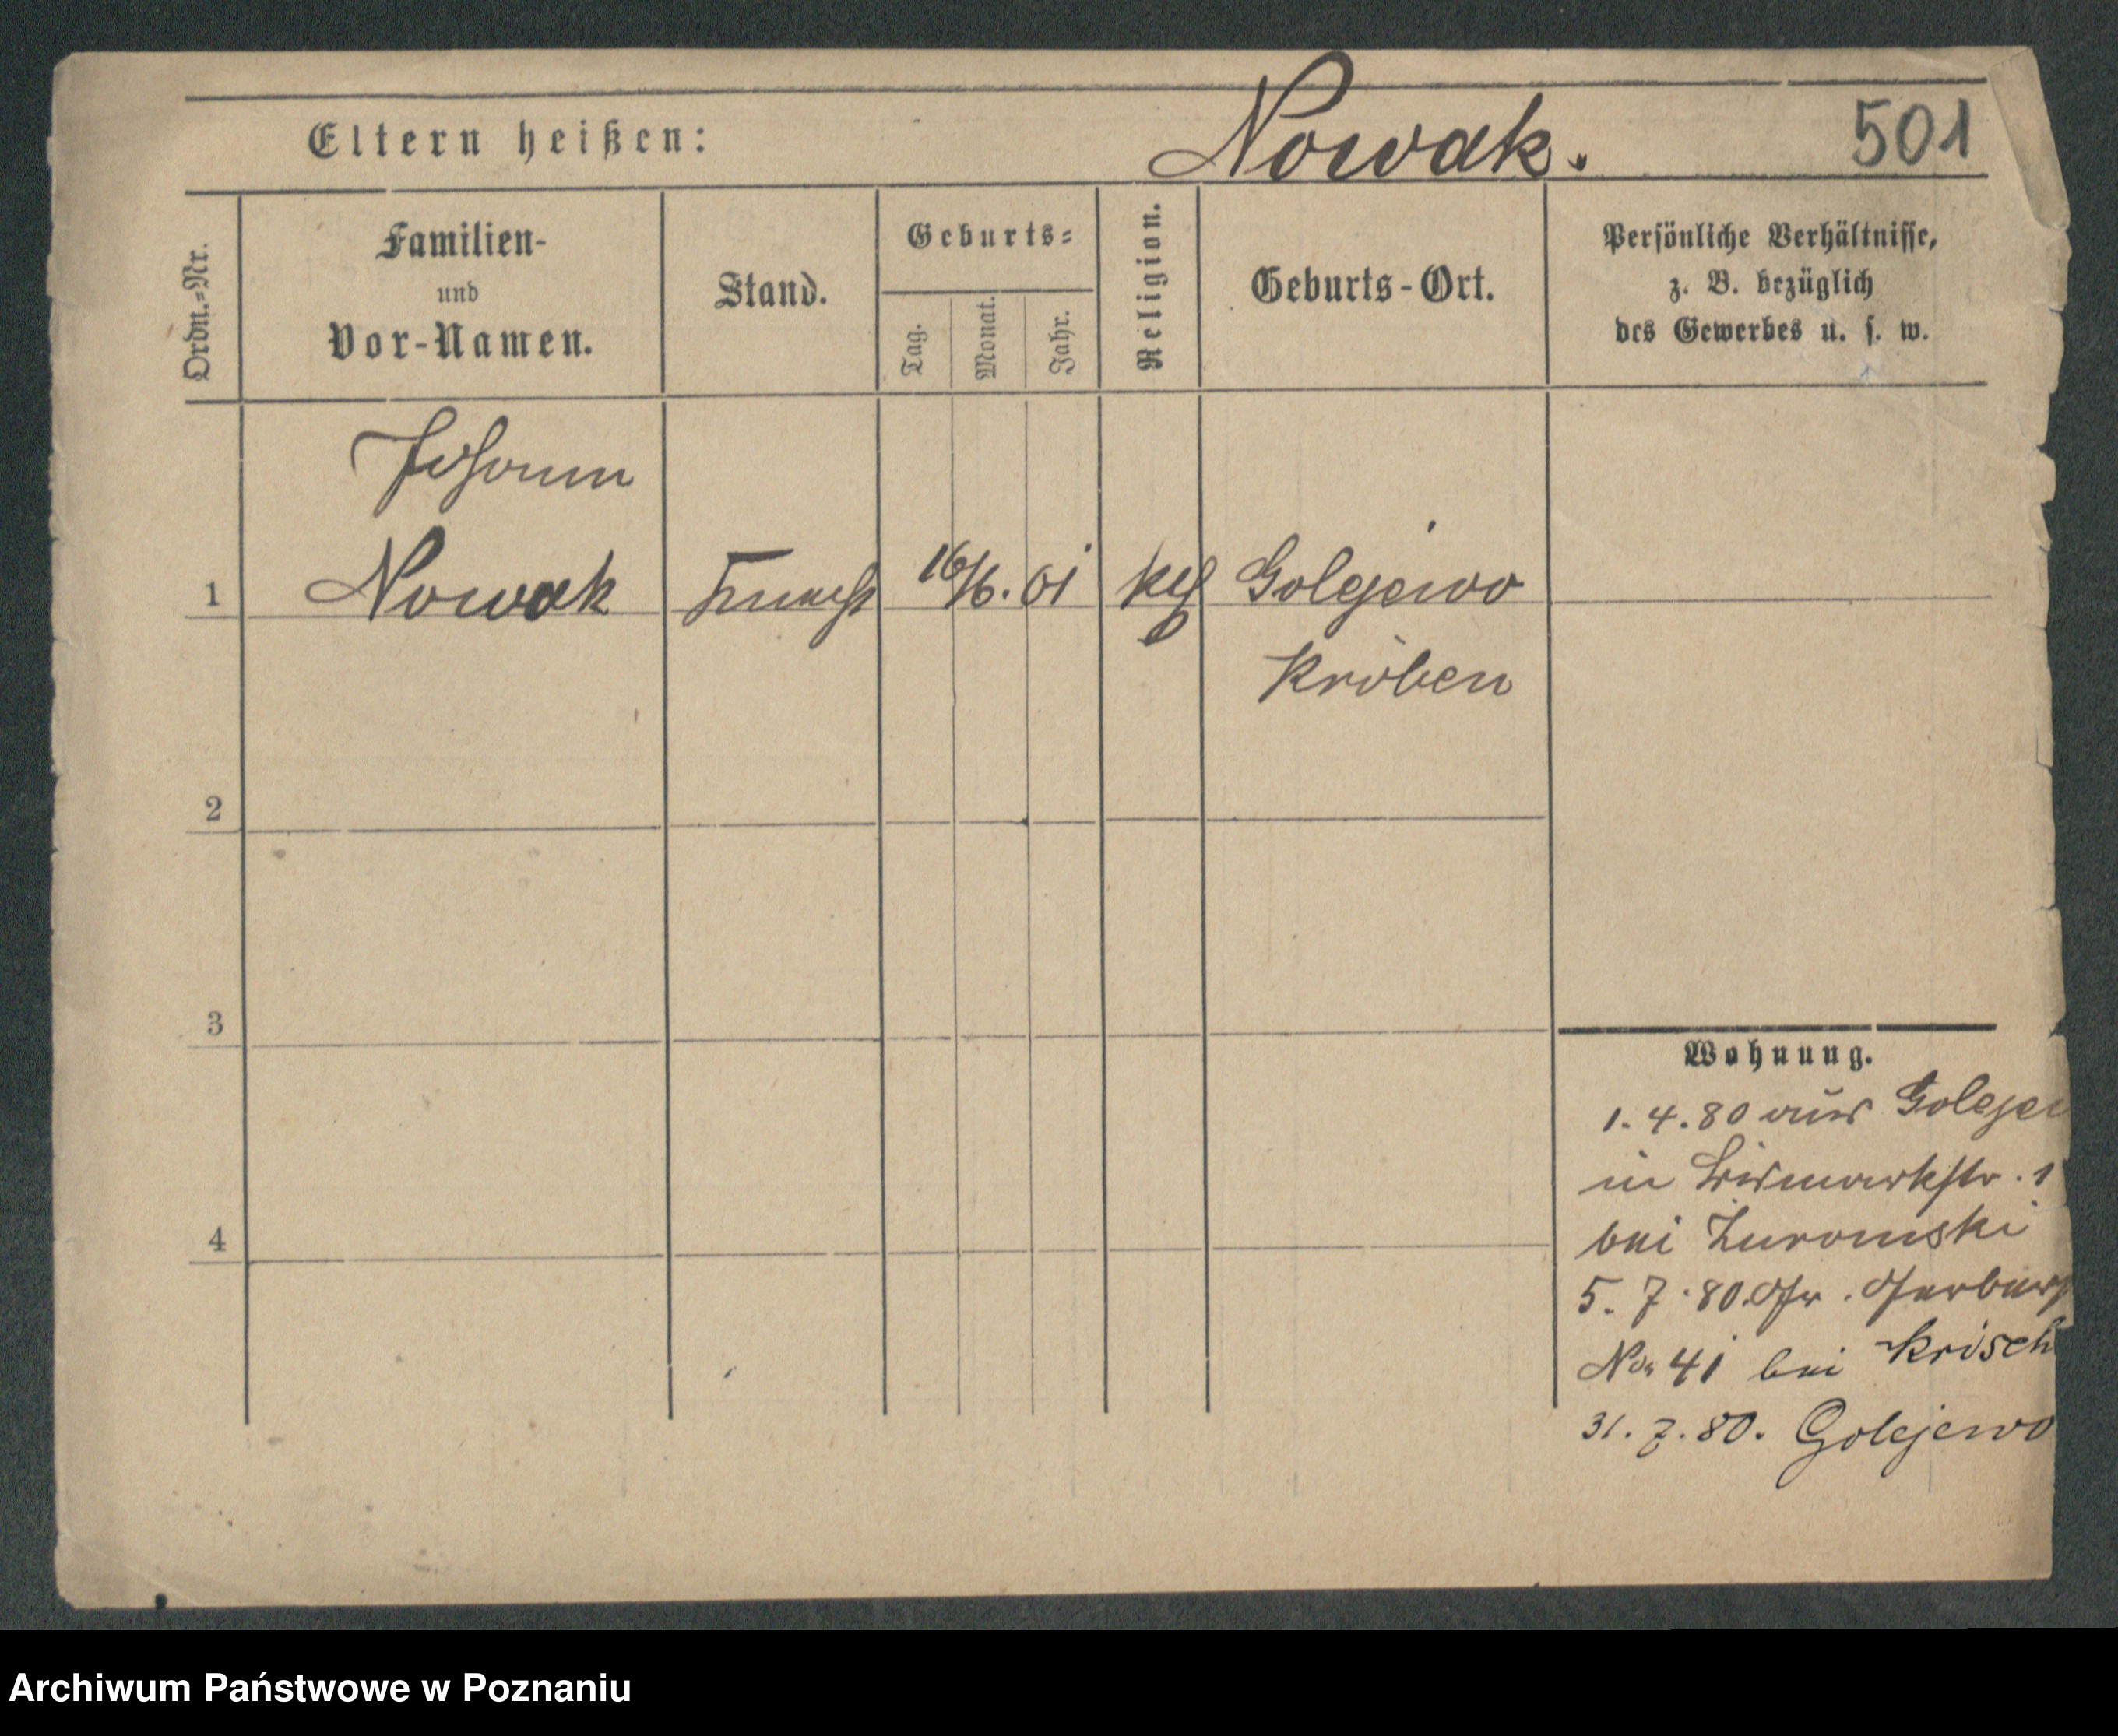 Eltern heißen: Nowak. 501
Ordn.=Nr.
Familien-
und
Vor-Namen.
Stand.
Geburts=
Tag.
Monat.
Jahr.
Religion.
Geburts-Ort.
Persönliche Verhältnisse,
z. B. bezüglich
des Gewerbes u. s. w.
Johann
1 Nowak 16/6. 61 kth Golejewo
Kröben
2
3
4
Wohnung.
1. 4. 80 aus Golejew
in Bismarkstr. 1
bei Zuromski
5. 7. 80. Gr. Gerber
No 41 bei Krisch
31. 7. 80. Golejewo
Archiwum Państwowe w Poznaniu